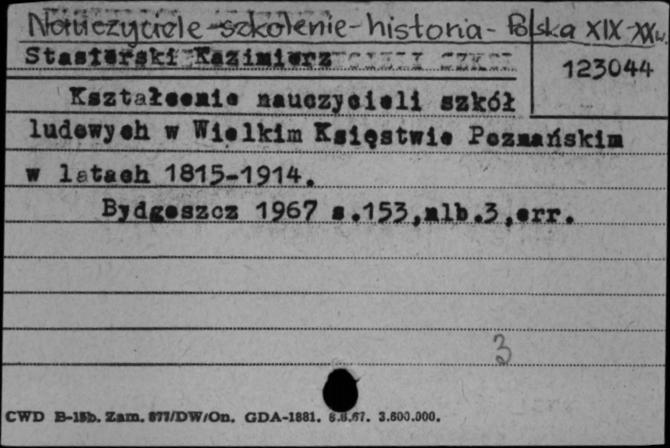 Nauczyciele-szkolenie-historia-Polska XIX-XXw.
Stasierski Kazimierz
123044
Kształcenie nauczycieli szkół
ludowych w Wielkim Księstwie Poznańskim
w latach 1815-1914.
Bydgoszcz 1967 s.153,nlb.3,err.
3
CWD B-15b. Zam. 877/DW/On. GDA-1881. 8.6.67. 3.600.000.